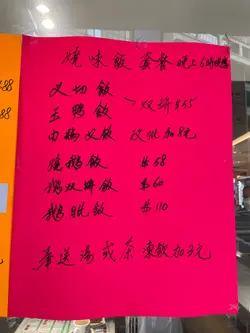 燒味飯套餐晚上6時後
叉切飯
玉鴨飯
双拼$55
由雞又飯 加8元
燒鵝飯 $58
鵝双拼飯 $60
鵝髀飯 $110
奉送湯或茶 凍飲加3元
88
88